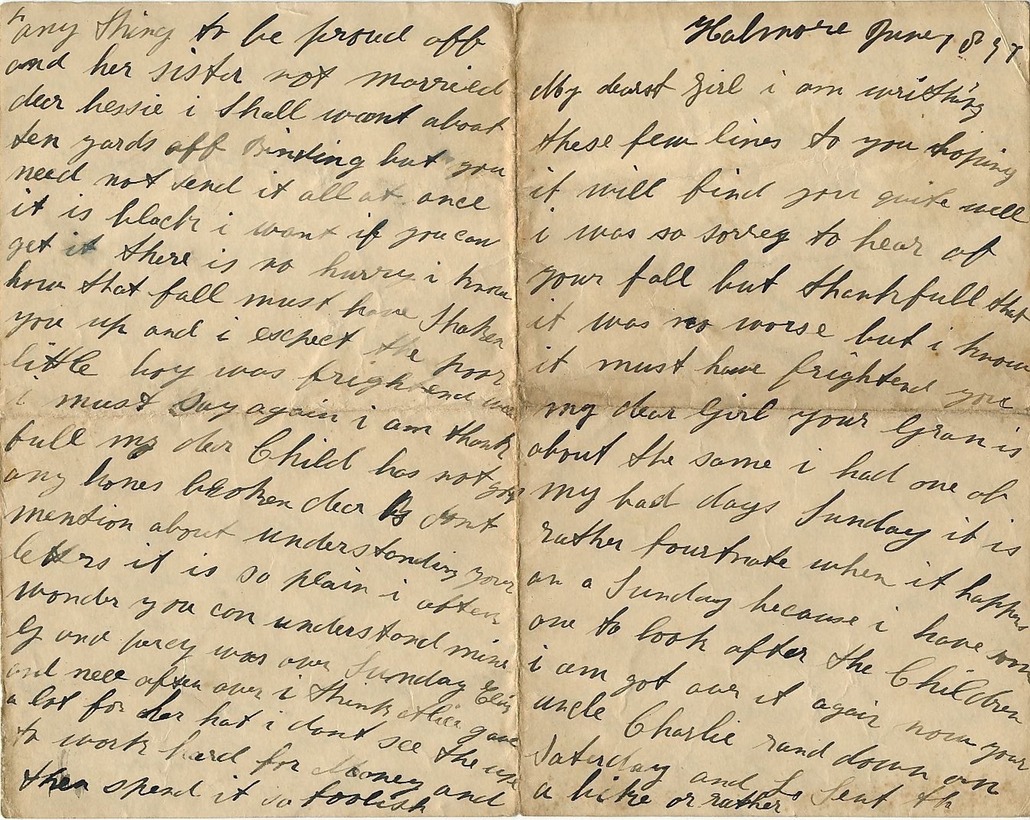 Halmore June 1897
My dearst girl i am writhing
these few lines to you hoping
it will find you quite well
i was so sorrey to hear of
your fall but thankfull that
it was no worse but i know
it must have frightend you
my dear Girl your Gran is
about the same i had one of
my bad days Sunday it is
rather fourtnate when it happens
on a Sunday because i have som
one to look after the Children
i am got over it again now your
uncle Charlie rand down on
Saturday and sent
a bike or rather
any thing to be proud off
and her sister not married
dear hessie i Shall want about
ten yards off Binding but you
need not send it all at once
it is black i want if you can
get it there is no hurry i know
how that fall must have Shaken
you up and i escpect the poor
little boy was frightend
i must Say again i am thank
full my dear Child has not got
any bones broken dear dont
mention about understanding your
letters it is so plain i often
wonder you can understand mine
and percy was over Sunday
and often over i think Alice gave
a lot for her hat i dont see the use
to work hard for Money and
then spend it so foolish